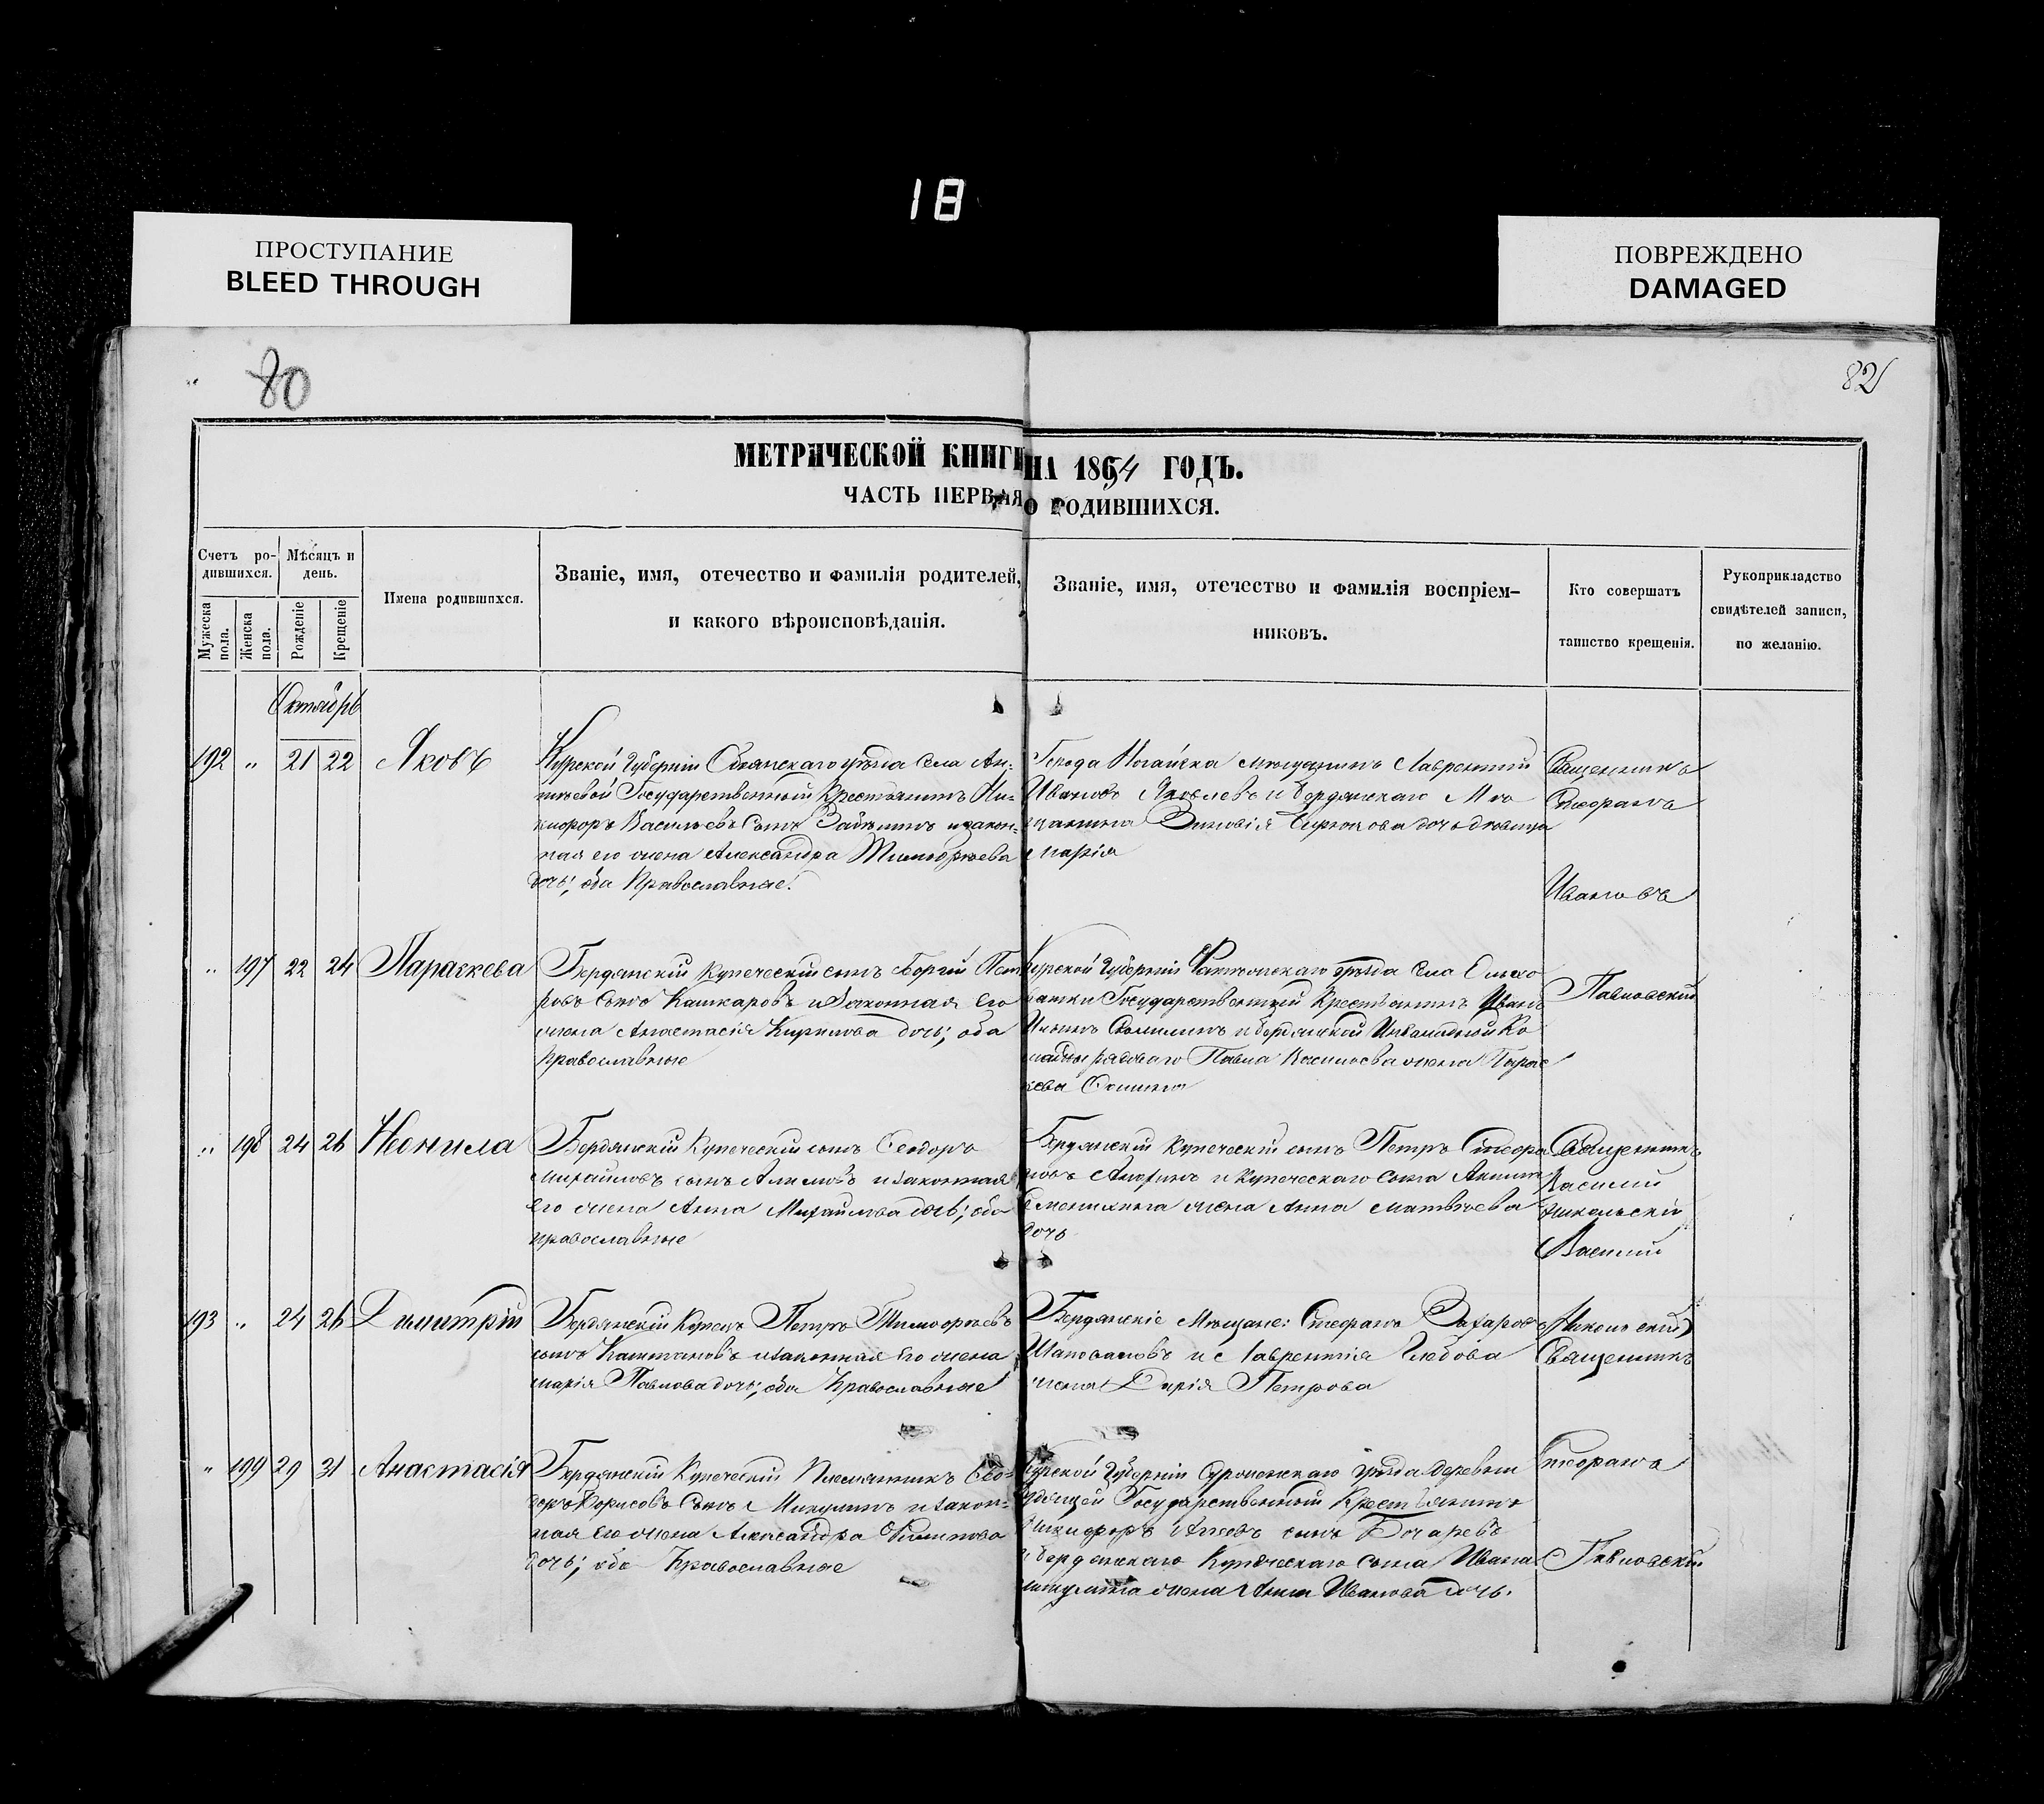 18
ПРОСТУПАНИЕ
BLEED THROUGH
ПОВРЕЖДЕНО
DAMAGED
80
82
МЕТРИЧЕСКОЙ КНИГИ НА 1864 ГОДЪ.
ЧАСТЬ ПЕРВАЯ О РОДИВШИХСЯ.
Счетъ родившихся.
Мужеска пола.
Женска пола.
Мѣсяцъ и день.
Рожденіе
Крещеніе
Имена родившихся.
Званіе, имя, отечество и фамилія родителей,
и какого вѣроисповѣданія.
Званіе, имя, отечество и фамилія воспріем-
никовъ.
Кто совершатъ
таинство крещенія.
Рукоприкладство
свидѣтелей записи,
по желанію.
Октябрь
192 " 21 22 Яковъ
Курской Губерніи Обоянскаго уѣзда Села
Государственный Крестьянинъ Ни-
кифоръ Васильевъ Сынъ и закон-
ная его жена Александра Тимофѣева
дочь; оба Православные.
Города Ногайска мѣщанинъ Лаврентій
Ивановъ Яковлевъ и Бердянскаго Мѣ
щанина Зиновія дочь дѣвица
Марія
Священникъ
Стефанъ
Ивановъ
" 197 22 24 Параскева
Бердянскій Купеческій сынъ Георгій Пет
ровъ Сынъ Кашкаровъ и Законная Его
жена Анастасія Кирилова дочь; оба
Православные
Курской Губерніи уѣзда Села Ольхо
ватки Государственный Крестьянинъ Иванъ
и Бердянской Инвалидной Ко
манды рядоваго Павла Васильева жена Парас
кева
Павловскій
" 198 24 26 Неонила
Бердянскій Купеческій сынъ Феодоръ
Михайловъ сынъ и Законная
Его жена Анна Михайлова дочь; оба
православные
Бердянскій Купеческій сынъ Петръ Стефа
новъ и Купеческаго Сына
жена Анна Матвѣева
дочь
Священникъ
Василій
Никольскій
Василій
193 " 24 26 Димитрій
Бердянскій Купецъ Петръ Тимофѣевъ
сынъ и Законная Его жена
Марія Павлова дочь; оба Православные
Бердянскіе Мѣщане: Стефанъ Захаровъ
Шаповаловъ и Лаврентія Глебова
жена Дарія Петрова
Никольскій
Священникъ
" 199 29 31 Анастасія
Бердянскій Купеческій Племянникъ Фео-
доръ Борисовъ Сынъ и закон-
ная Его жена Александра Филипова
дочь; оба Православные
Курской Губерніи уѣзда деревни
Государственный Крестьянинъ
Никифоръ сынъ Бочаревъ
и Бердянскаго Купеческаго Сына Ивана
жена Анна Иванова дочь.
Стефанъ
Павловскій